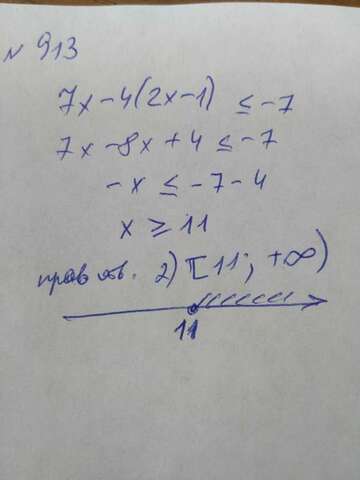 № 913
7x - 4(2x - 1) ≤ -7
7x - 8x + 4 ≤ -7
-x ≤ -7 - 4
x ≥ 11
прав. отв. 2) [11; +∞)
11